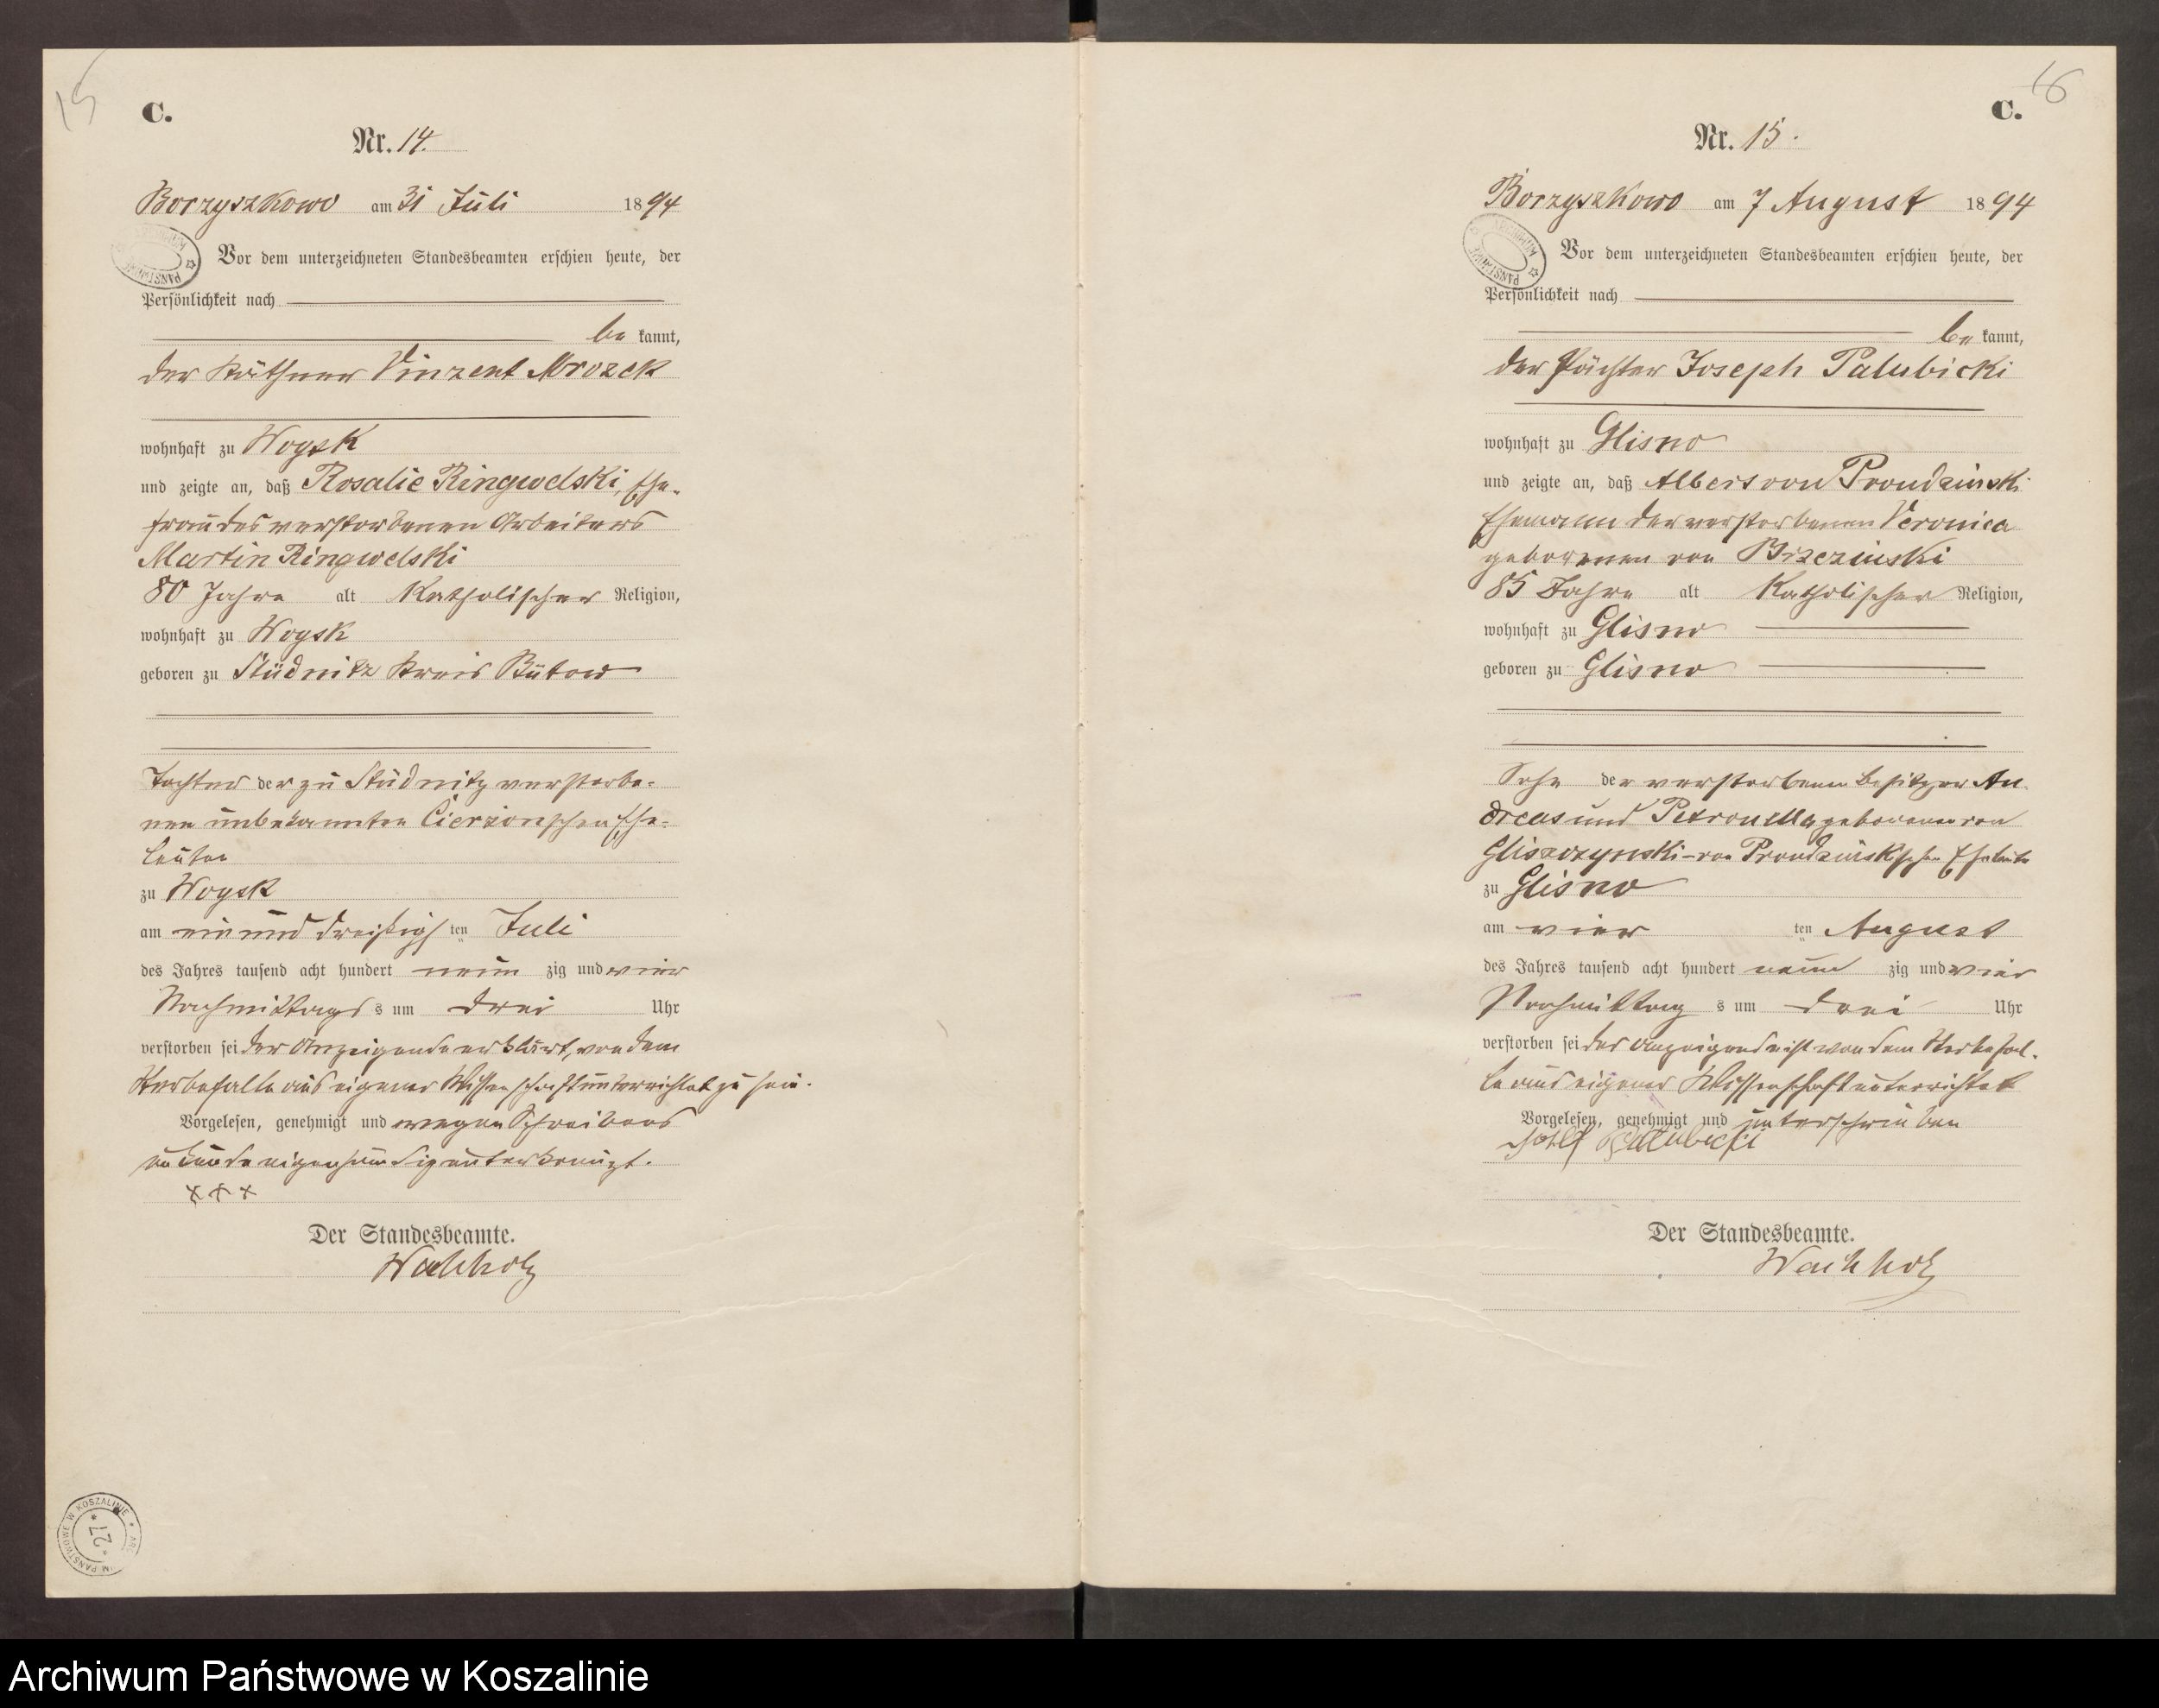 15
C.
Nr. 14.
Borzyszkowo am 31 Juli 1894
Vor dem unterzeichneten Standesbeamten erschien heute, der
Persönlichkeit nach
be kannt,
der Käthner Vinzent Mrozek
wohnhaft zu Wogsk
und zeigte an, daß Rosalie Ringwelski, Ehe-
frau des verstorbenen Arbeiters
Martin Ringwelski
80 Jahre alt Katholischer Religion,
wohnhaft zu Wogsk
geboren zu Stüdnitz Kreis Bütow
Tochter der zu Stüdnitz verstorbe-
nen unbekannten Cierzonschen Ehe-
leuten
zu Wogsk
am ein und dreißigs ten Juli
des Jahres tausend acht hundert neun zig und vier
Nachmittags s um drei Uhr
verstorben sei der Anzeigende erklärt, von dem
Sterbefalle aus eigener Wissenschaft unterrichtet zu sein.
Vorgelesen, genehmigt und wegen Schreibens
unkunde eigenhändig unterkreuzt.
+++
Der Standesbeamte.
Wachholz
ARCHIWUM PAŃSTWOWE W KOSZALINIE
* 27 *
16
C.
Nr. 15.
Borzyszkowo am 7 August 1894
Vor dem unterzeichneten Standesbeamten erschien heute, der
Persönlichkeit nach
be kannt,
der Pächter Joseph Palubicki
wohnhaft zu Glisno
und zeigte an, daß Albert von Prondzinski
Ehemann der verstorbenen Veronica
geborenen von Brzezinski
85 Jahre alt Katholischer Religion,
wohnhaft zu Glisno
geboren zu Glisno
Sohn der verstorbenen Besitzer An-
dreas und Petronella geborenen von
Gliszczynski-von Prondzinskischen Eheleute
zu Glisno
am vier ten August
des Jahres tausend acht hundert neun zig und vier
Nachmittag s um drei Uhr
verstorben sei der Anzeigende ist von dem Sterbefal-
le aus eigener Wissenschaft unterrichtet
Vorgelesen, genehmigt und unterschrieben
Palubicki
Der Standesbeamte.
Wachholz
Archiwum Państwowe w Koszalinie